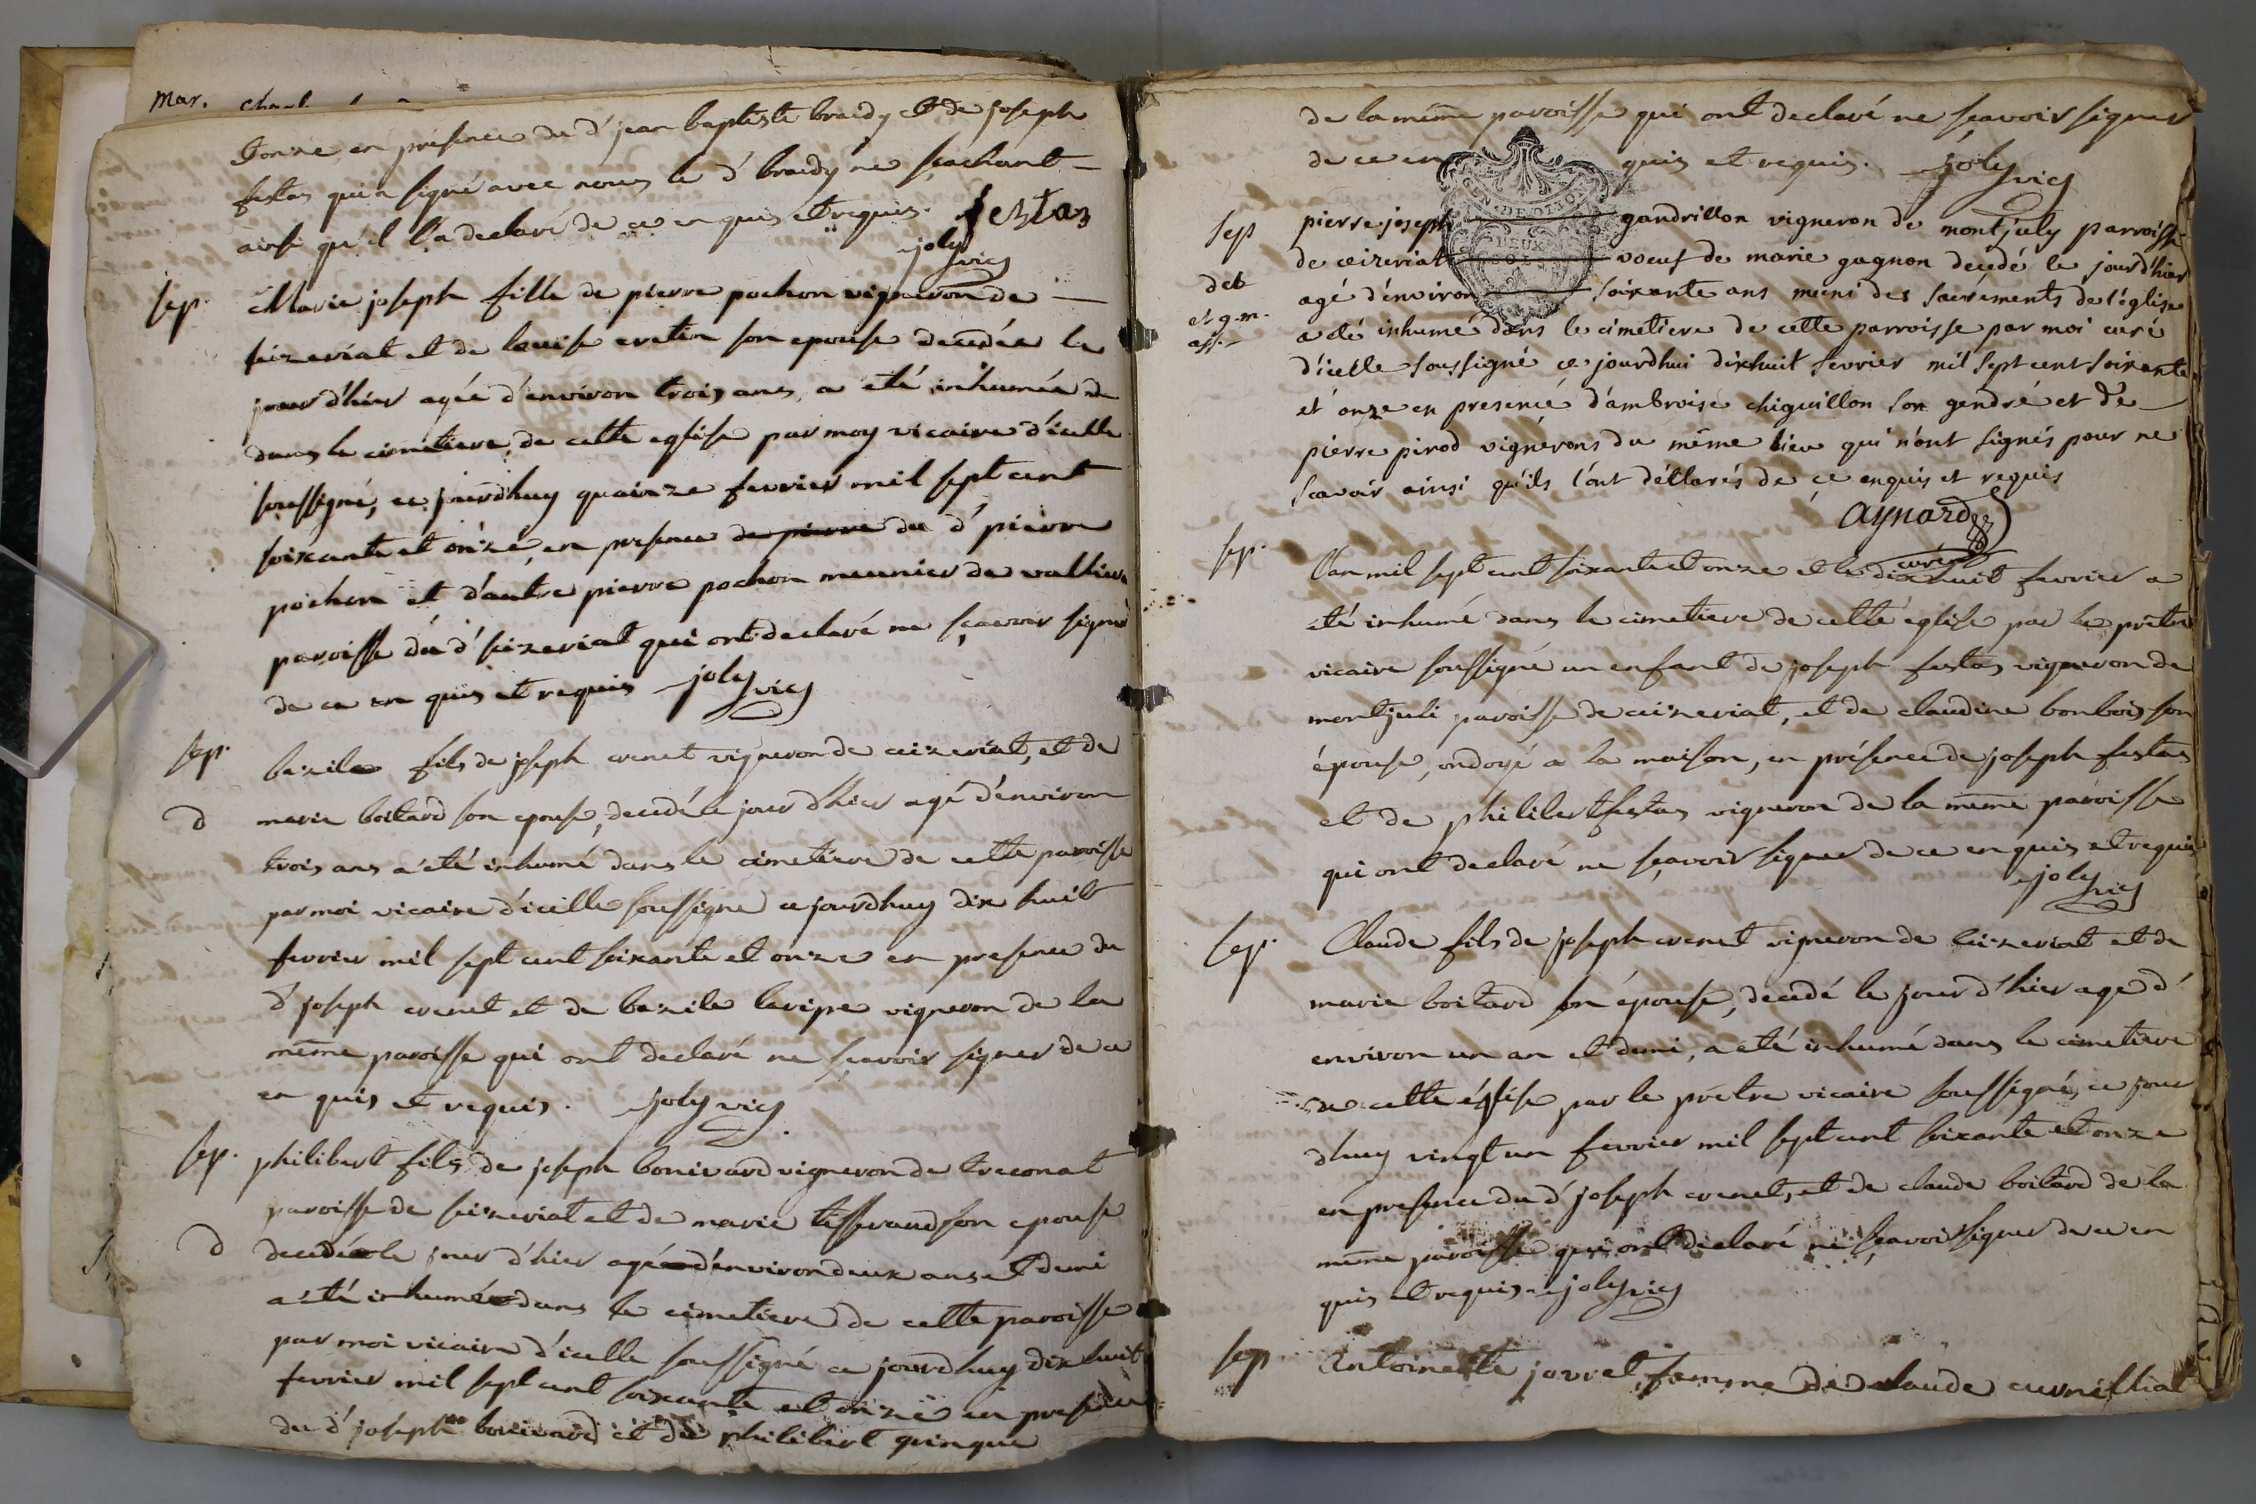 mar.
et onze en présence du d' jean baptiste braidy et de joseph
festas qui a signé avec nous le d' braidy ne sçachant
ainsi qu'il l'a declaré de ce en quis et requis. festas
joly vic
sep. Marie joseph fille de pierre pochon vigneron de
seizeriat et de louise son epouse decedée le
jour d'hier agée d'environ trois ans, a eté inhumée
dans le cimetiere de cette eglise par moy vicaire d'icelle
soussigné, ce jourdhuy quainze fevrier mil sept cent
soixante et onze, en presence de pierre du d' pierre
pochon et d'autre pierre pochon meunier de
paroisse du d' seizeriat qui ont declaré ne sçavoir signer
de ce en quis et requis joly vic
sep. bazile fils de joseph crenet vigneron de ceizeriat, et de
d marie boitard son epouse, decedé le jour d'hier agé d'environ
trois ans a été inhumé dans le cimetiere de cette paroisse
par moi vicaire d'icelle soussigne ce jourdhuy dix huit
fevrier mil sept cent soixante et onze en presence du
d' joseph crenet et de bazile vigneron de la
même paroisse qui ont declaré ne sçavoir signer de ce
en quis et requis. joly vic
sep. philibert fils de joseph bonivard vigneron de treconat
paroisse de seizeriat et de marie tisserand son epouse
d decedé le jour d'hier agé d'environ deux ans et demi
a été inhumé dans le cimetiere de cette paroisse
par moi vicaire d'icelle soussigné ce jourdhuy dix huit
fevrier mil sept cent soixante et onze en presence
du d' joseph bonivard et de philibert
de la même paroisse qui ont declaré ne sçavoir signer
de ce en quis et requis. joly vic
GEN. DE DIJON
DEUX SOLS
sep pierre joseph gandrillon vigneron de montjuly parroisse
de ceizeriat voeuf de marie gagnon decedé le jourd'hier
deb agé d'environ soixante ans muni des sacrements de l'église
et g.m. a été inhumé dans le cimetiere de cette parroisse par moi curé
aff. d'icelle soussigné ce jourdhui dixhuit fevrier mil sept cent soixante
et onze en presence d'ambroise chiguillon son gendre et de
pierre pirod vignerons du même lieu qui n'ont signés pour ne
scavoir ainsi qu'ils l'ont déclarés de ce enquis et requis
aynard
curé
sep. L'an mil sept cent soixante et onze et le dix huit fevrier a
été inhumé dans le cimetiere de cette eglise par le prêtre
vicaire soussigné un enfant de joseph festas vigneron de
montjuli paroisse de ceizeriat, et de claudine bonbois son
épouse, ondoyé a la maison, en présence de joseph festas
et de philibert festas vigneron de la même paroisse
qui ont declaré ne sçavoir signer de ce en quis et requis
joly vic
sep. Claude fils de joseph crenet vigneron de ceizeriat et de
marie boitard son épouse, decedé le jour d'hier agé d'
environ un an et demi, a été inhumé dans le cimetiere
de cette église par le prêtre vicaire soussigné, ce jour
dhuy vingt un fevrier mil sept cent soixante et onze
en presence du d' joseph crenet, et de claude boitard de la
même paroisse qui ont declaré ne sçavoir signer de ce en
quis et requis. joly vic
sep. Antoinette jouret femme de claude